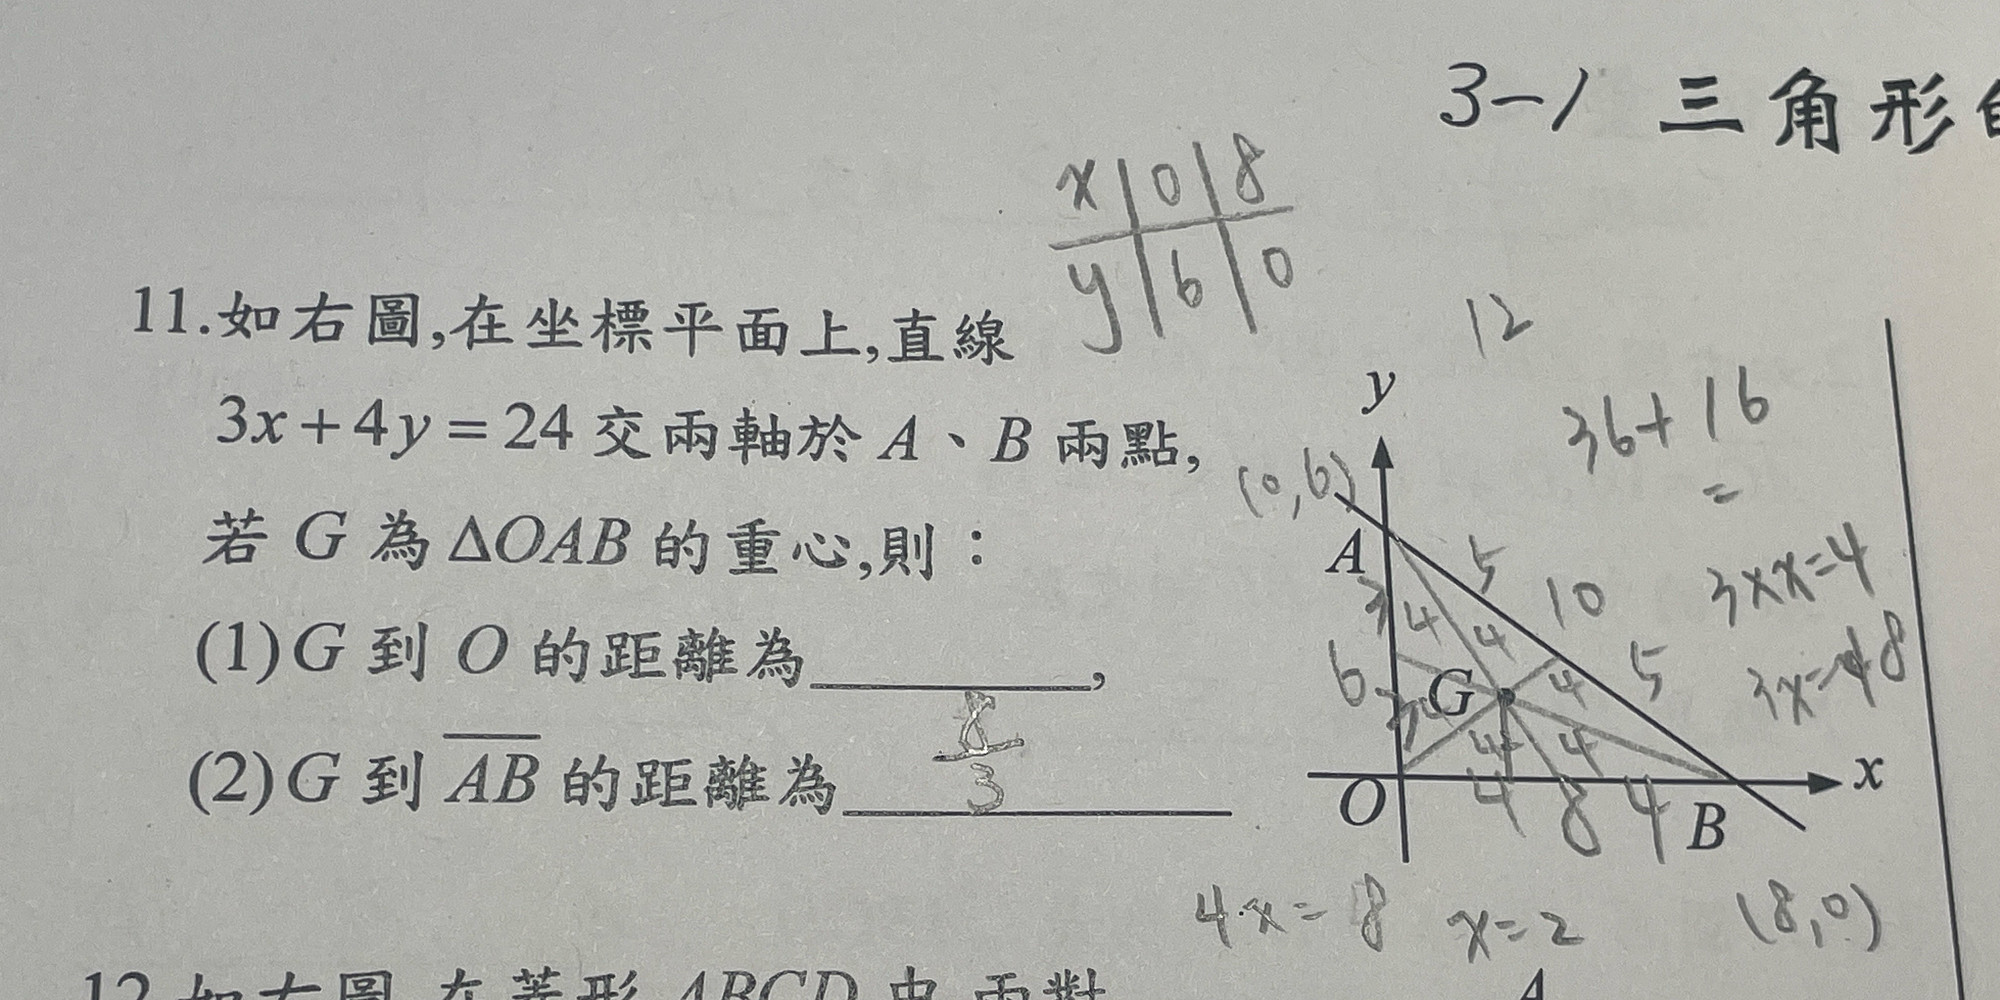 3-1 三角形
x 0 8
y 6 0
11.如右圖,在坐標平面上,直線
3x+4y=24 交兩軸於 A、B 兩點,
若 G 為 ΔOAB 的重心,則：
(1)G 到 O 的距離為________,
8
3
(2)G 到 AB 的距離為________
12
36+16
=
3×x=4
3x=48
y
(0,6)
A
5
10
3 4 4
6 G 4 5
3
4 4
O x
4 8 4 B
4·x=8 x=2 (8,0)
12.如右圖,在菱形 ABCD 中,兩對
A